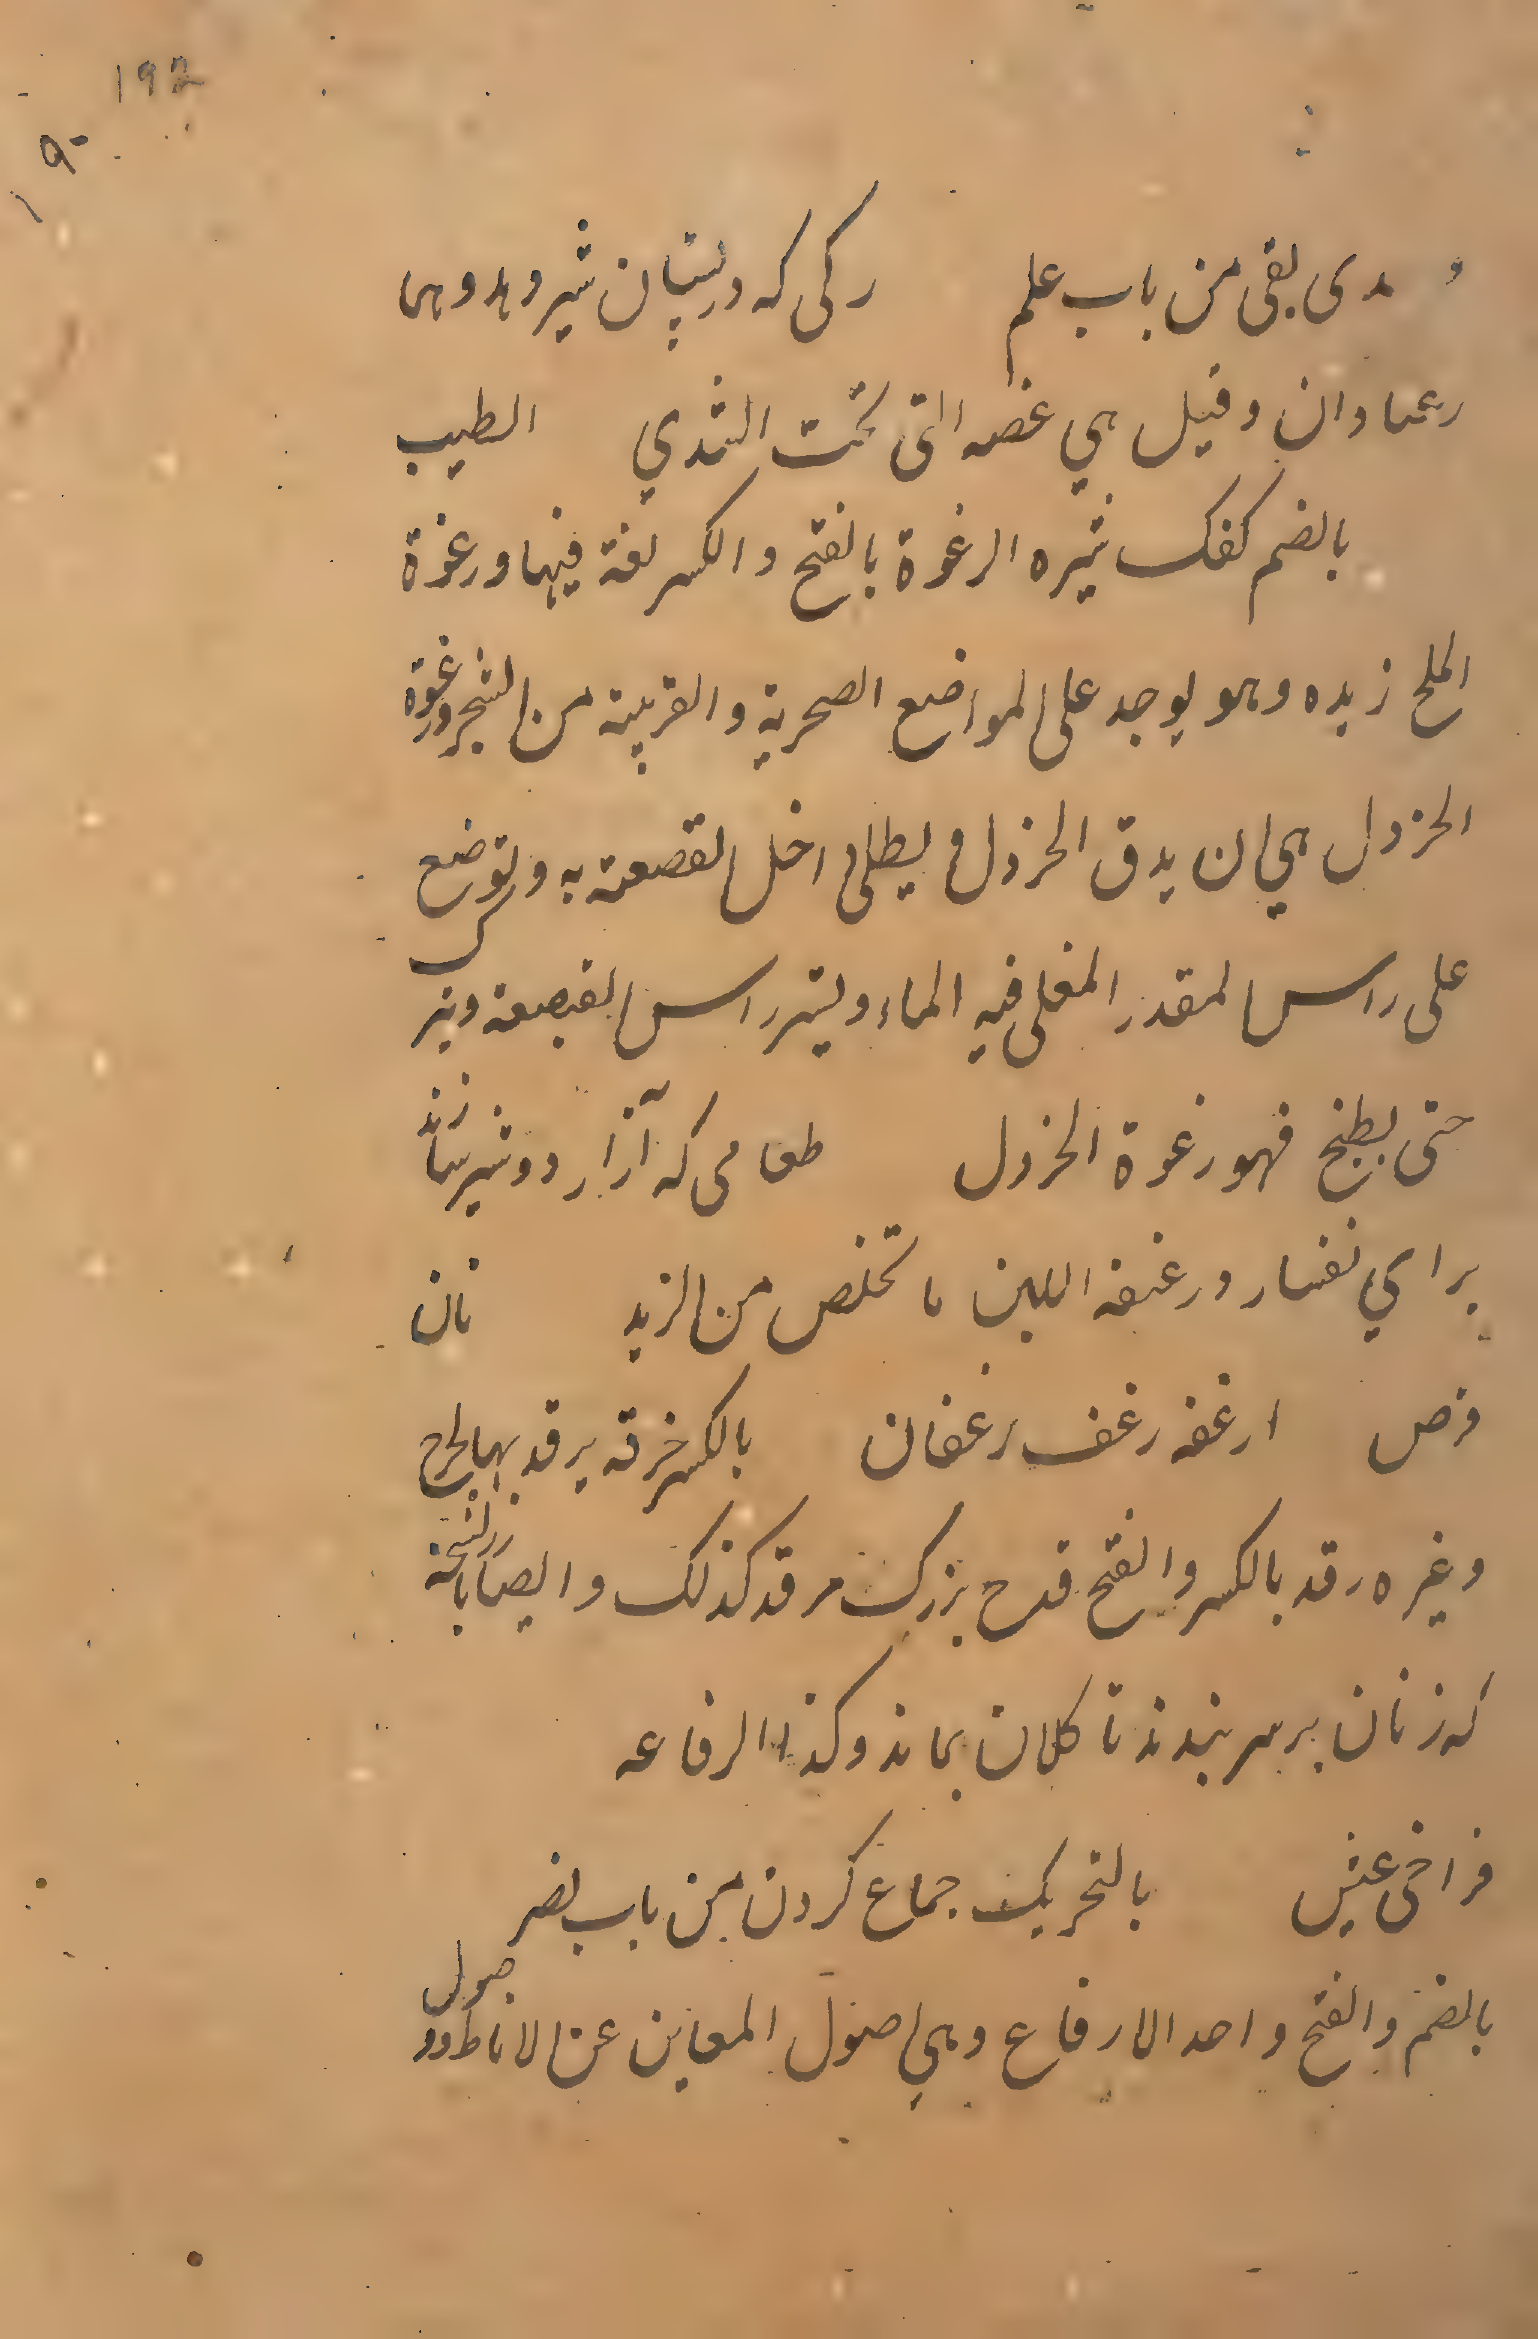 192
۱۹۰
ردی بقی من باب علم رکی که در پستان شیر دهد و هما
رعثاوان و قیل هی عصبه التی تحت الثدی الطیب
بالضم کفک شیره الرغوة بالفتح و الکسر لغة فیها و رغوة
الملح زبده و هو یوجد علی المواضع الصخریة و القریبة من الشجر و رغوة
الخردل هی ان یدق الخردل و یطلی داخل القصعة به و توضع
علی راس القدر المغلی فیه الماء و یستر راس القصعة و یترک
حتی یطبخ فهو رغوة الخردل طعامی که آنرا از دوشیر سازند
برای نفسار و رغیغة اللبن ما تخلص من الزبد نان
قرص ارغفه رغف رغفان بالکسر خرقه یرقد بها الجرح
و غیره رفد بالکسر و الفتح قدح بزرگ مرفد کذلک و ایضا بالشچه
که زنان بر سر بندند تا کلان نماید و کذا الرفاعه
فراخی عیش بالتحریک جماع کردن من باب نصر
بالضم و الفتح واحد الارفاع و هی اصول المغابن عن الاباط و اصول